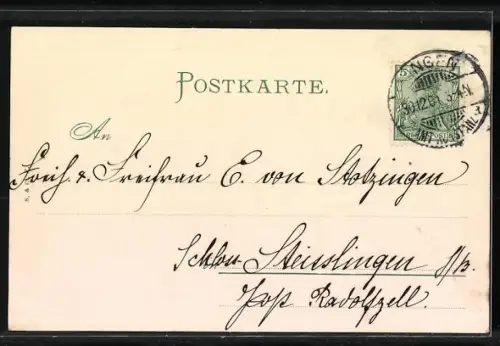 POSTKARTE.
An
Freih. & Freifrau E. von Stotzingen
Schloss Steisslingen
Post Radolfzell.